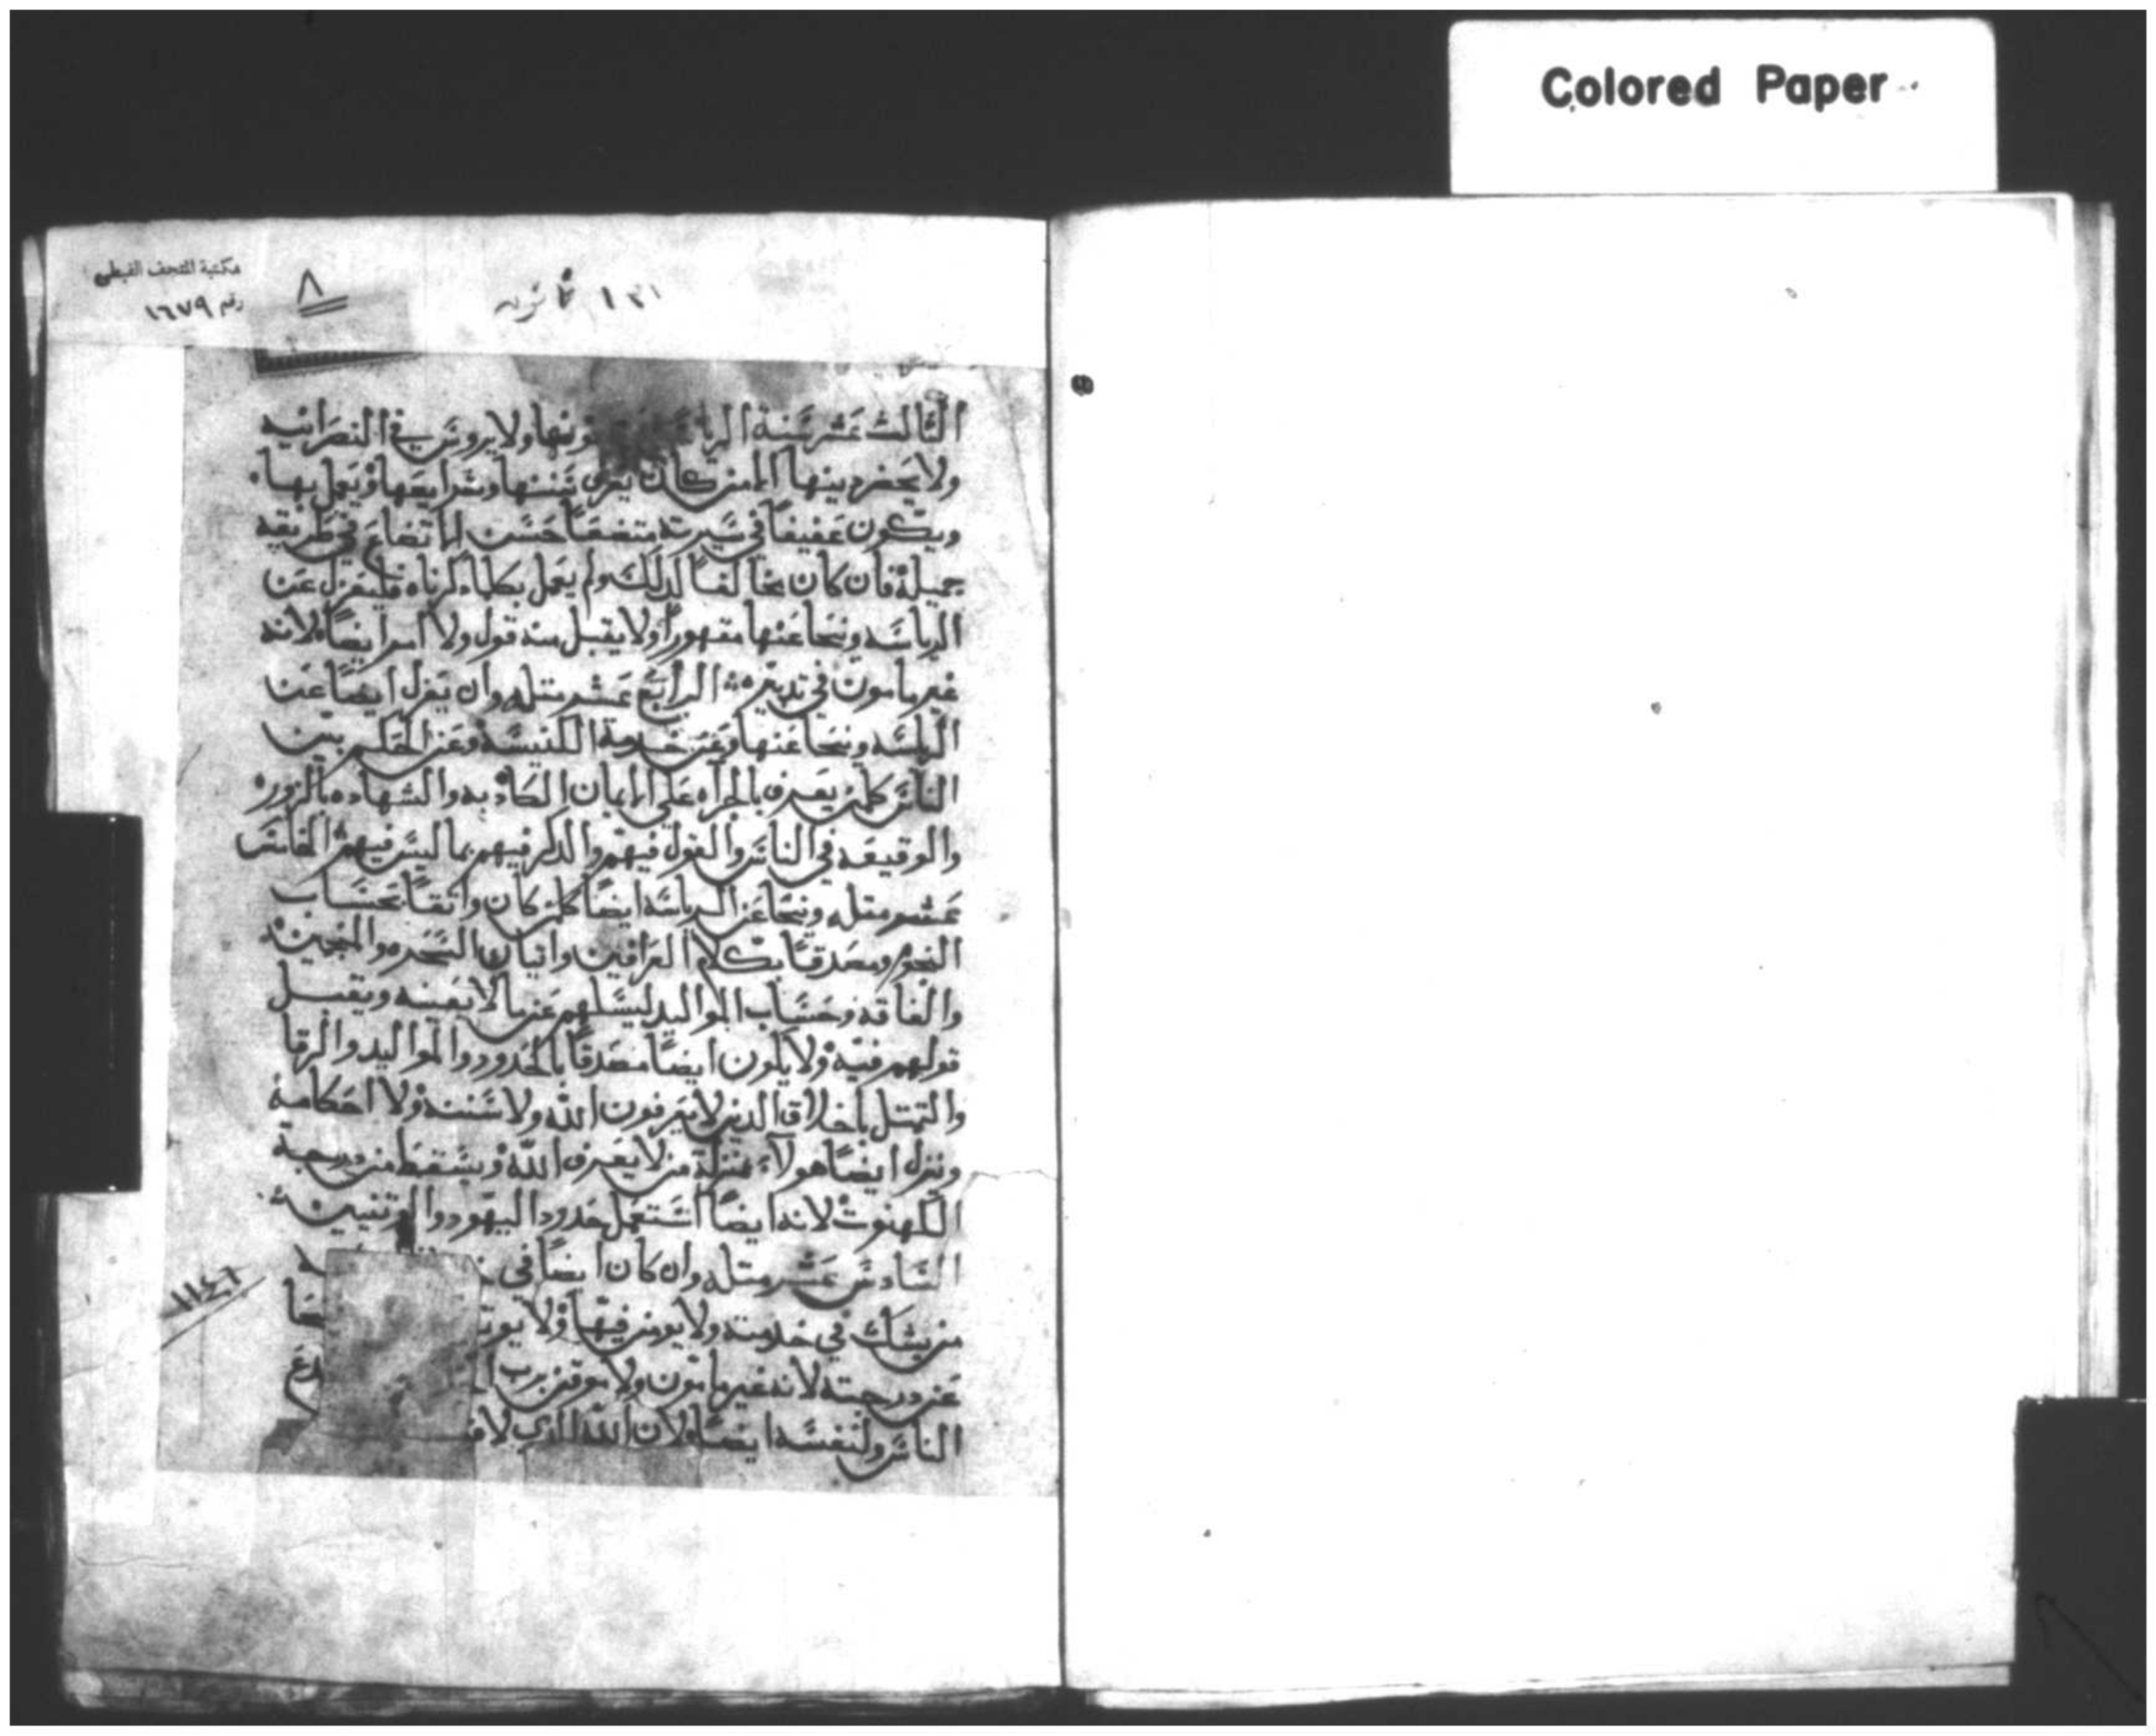 Colored Paper
مكتبة المتحف القبطى
رقم ١٦٧٩
٨
الثالث عشر سنة ولا يروس في النصرانيه
ولا يحضر دينها الا من كان يعرف سننها وشرايعها ويعمل بها
ويكون عفيفا في سيرته متضعا حسن الاتضاع في طريقه
جميله فان كان مخالفا لدلك ولم يعمل بكلما دكرناه فليعزل عن
الرياسه وينحا عنها مقهورا ولا يقبل منه قول ولا امر ايضا لانه
غير مامون في تدبيره الرابع عشر مثله وان يعزل ايضا عن
الرياسه وينحا عنها وعن خدمة الكنيسه وعن الحكم بين
الناس كلمن يعرف بالجراه على الايمان الكادبه والشهاده بالزور
والوقيعه في الناس والقول فيهم والدكر فيهم بما ليس فيهم الخامس
عشر مثله وينحا عن الرياسه ايضا كلمن كان واثقا بحساب
النجوم ومصدقا بكلام العرافين واتيان السحره والمنجمين
وحساب المواليد ليسلهم عن ما لا يعينه ويقبل
قولهم فيه ولا يكون ايضا مصدقا بالحدود والمواليد والرقا
والتمتل باخلاق الدين لا يعرفون الله ولا سننه ولا احكامه
وينزل ايضا هولاء بمنزلة من لا يعرف الله ويسقط من درجة
الكهنوت لانه ايضا استعمل حدود اليهود والوتنيين
السادس عشر مثله وان كان ايضا في
من يشك في خدمته ولا يومن فيها ولا
عن درجته لانه غير مامون ولا موقن برب
الناس ولنفسه ايضا لان الله الدي
١١٤٦